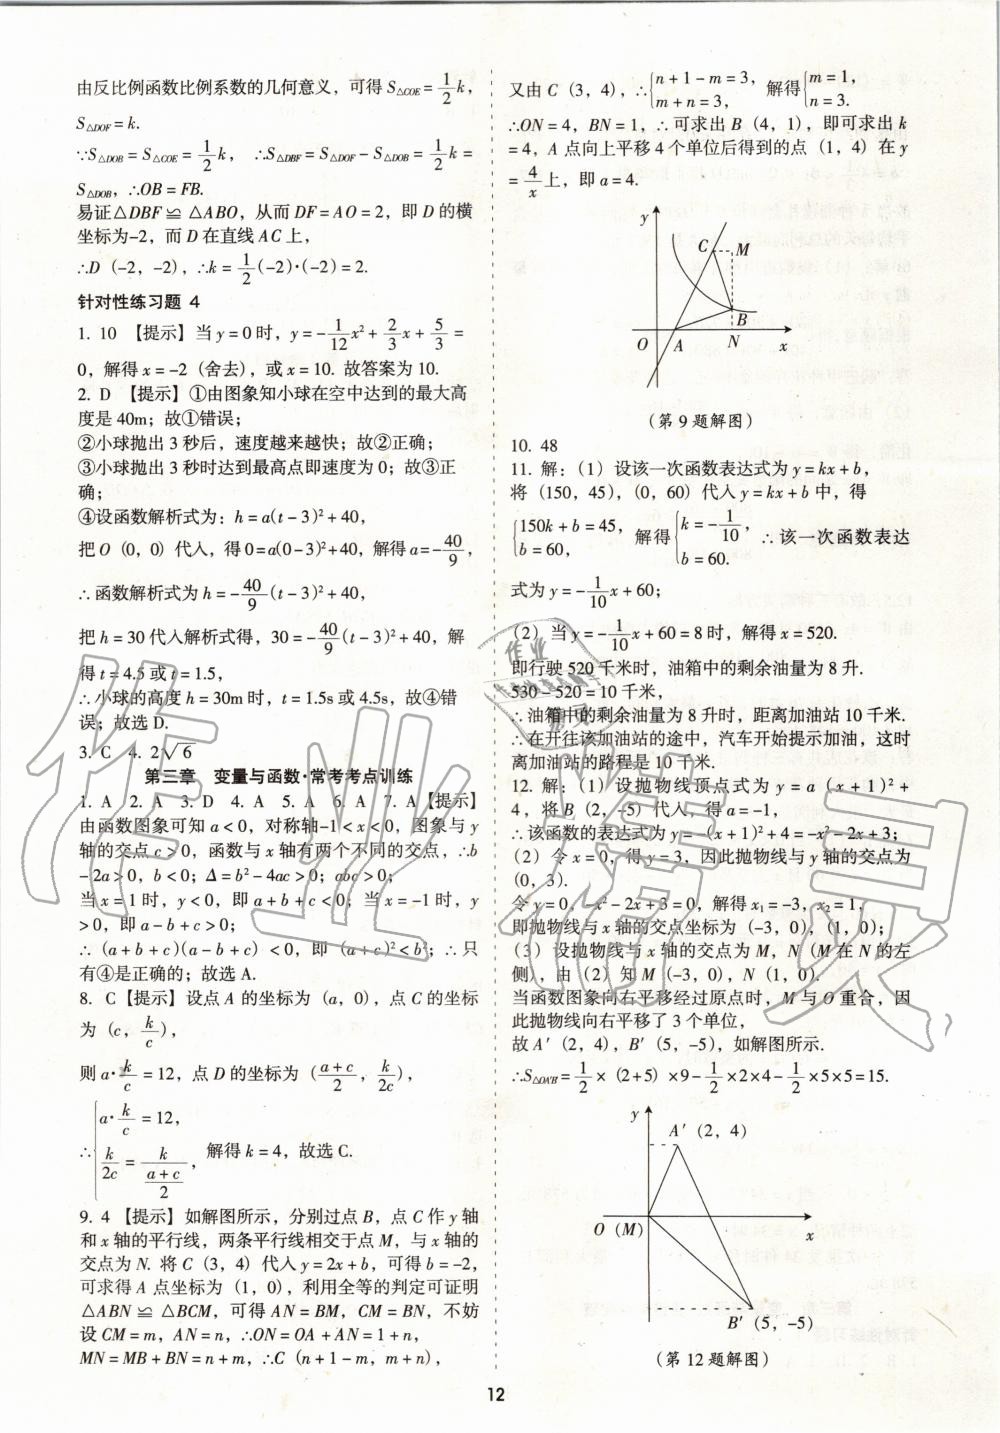 由反比例函数比例系数的几何意义，可得 S△COE = 1/2 k，
S△DOF = k.
∵S△DOB = S△COE = 1/2 k， ∴S△DBF = S△DOF − S△DOB = 1/2 k =
S△DOB，∴OB = FB.
易证△DBF ≌ △ABO，从而 DF = AO = 2，即 D 的横
坐标为-2，而 D 在直线 AC 上，
∴D（-2，-2），∴k = 1/2 (-2)·(-2) = 2.
针对性练习题 4
1. 10 【提示】当 y = 0 时，y = -1/12 x² + 2/3 x + 5/3 =
0，解得 x = -2（舍去），或 x = 10. 故答案为 10.
2. D 【提示】①由图象知小球在空中达到的最大高
度是 40m；故①错误；
②小球抛出 3 秒后，速度越来越快；故②正确；
③小球抛出 3 秒时达到最高点即速度为 0；故③正
确；
④设函数解析式为：h = a(t − 3)² + 40，
把 O（0，0）代入，得 0 = a(0 − 3)² + 40，解得 a = -40/9，
∴函数解析式为 h = -40/9 (t − 3)² + 40，
把 h = 30 代入解析式得，30 = -40/9 (t − 3)² + 40，解
得 t = 4.5 或 t = 1.5，
∴小球的高度 h = 30m 时，t = 1.5s 或 4.5s，故④错
误；故选 D.
3. C 4. 2√6
第三章 变量与函数·常考考点训练
1. A 2. A 3. D 4. A 5. A 6. A 7. A【提示】
由函数图象可知 a < 0，对称轴-1 < x < 0，图象与 y
轴的交点 c > 0，函数与 x 轴有两个不同的交点，∴b
- 2a > 0，b < 0；Δ = b² − 4ac > 0；abc > 0；
当 x = 1 时，y < 0，即 a + b + c < 0；当 x = −1 时，y
> 0，即 a − b + c > 0；
∴ (a + b + c)(a − b + c) < 0，即 (a + c)² < b²；∴只
有④是正确的；故选 A.
8. C【提示】设点 A 的坐标为（a，0），点 C 的坐标
为（c，k/c），
则 a·k/c = 12，点 D 的坐标为（(a + c)/2，k/2c），
∴{ a·k/c = 12，
k/2c = k/((a + c)/2)， 解得 k = 4，故选 C.
9. 4【提示】如解图所示，分别过点 B，点 C 作 y 轴
和 x 轴的平行线，两条平行线相交于点 M，与 x 轴的
交点为 N. 将 C（3，4）代入 y = 2x + b，可得 b = −2，
可求得 A 点坐标为（1，0），利用全等的判定可证明
△ABN ≌ △BCM，可得 AN = BM，CM = BN，不妨
设 CM = m，AN = n，∴ON = OA + AN = 1 + n，
MN = MB + BN = n + m，∴C（n + 1 − m，m + n），
又由 C（3，4），∴{ n + 1 − m = 3，m + n = 3， 解得{ m = 1，n = 3.
∴ON = 4，BN = 1，∴可求出 B（4，1），即可求出 k
= 4，A 点向上平移 4 个单位后得到的点（1，4）在 y
= 4/x 上，即 a = 4.
y
C
M
B
O
A
N
x
（第 9 题解图）
10. 48
11. 解：（1）设该一次函数表达式为 y = kx + b，
将（150，45），（0，60）代入 y = kx + b 中，得
{ 150k + b = 45，b = 60， 解得{ k = -1/10，b = 60. ∴该一次函数表达
式为 y = -1/10 x + 60；
（2）当 y = -1/10 x + 60 = 8 时，解得 x = 520.
即行驶 520 千米时，油箱中的剩余油量为 8 升.
530 − 520 = 10 千米，
∴油箱中的剩余油量为 8 升时，距离加油站 10 千米.
∴在开往该加油站的途中，汽车开始提示加油，这时
离加油站的路程是 10 千米.
12. 解：（1）设抛物线顶点式为 y = a（x + 1）² +
4，将 B（2，−5）代入，得 a = −1，
∴该函数的表达式为 y = −（x + 1）² + 4 = −x² − 2x + 3；
（2）令 x = 0，得 y = 3，因此抛物线与 y 轴的交点为
（0，3）.
令 y = 0，−x² − 2x + 3 = 0，解得 x₁ = −3，x₂ = 1，
即抛物线与 x 轴的交点坐标为（−3，0），（1，0）；
（3）设抛物线与 x 轴的交点为 M，N（M 在 N 的左
侧），由（2）知 M（−3，0），N（1，0）.
当函数图象向右平移经过原点时，M 与 O 重合，因
此抛物线向右平移了 3 个单位，
故 A′（2，4），B′（5，−5），如解图所示.
∴S△OA′B′ = 1/2 ×（2+5）×9 − 1/2 ×2×4 − 1/2 ×5×5 = 15.
y
A′（2，4）
O（M）
x
B′（5，−5）
（第 12 题解图）
12
作业精灵